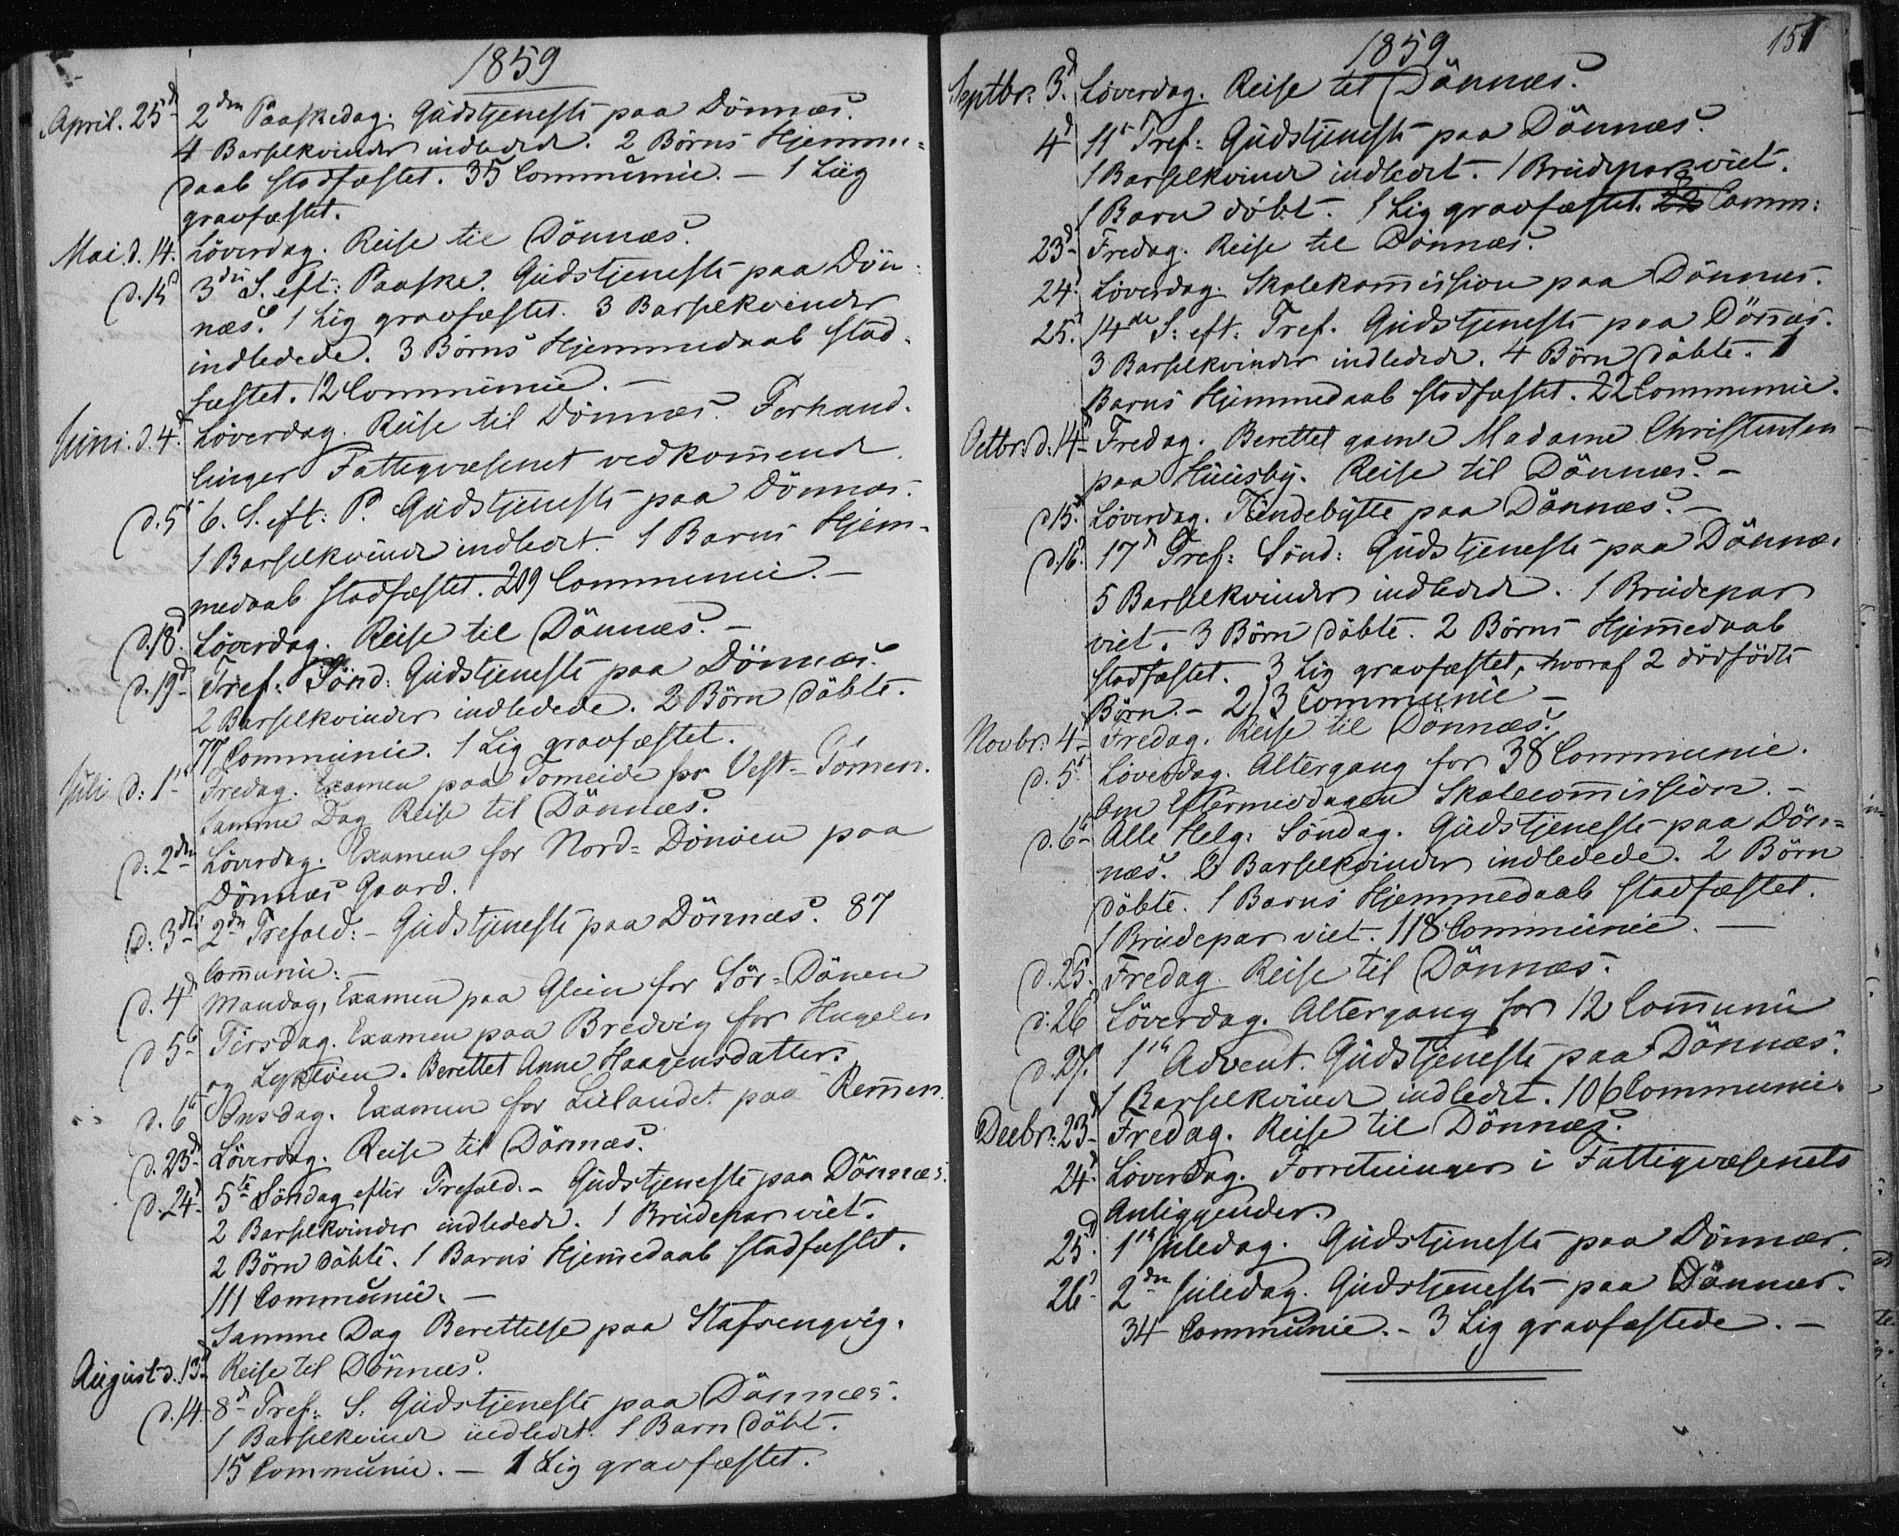 1859
April. 25d 2den Paaskedag. Gudstjeneste paa Dönnæs.
4 Barselkvinder indledede. 2 Börns Hjemme-
daab stadfæstet. 35 Communic. — 1 Liig
gravfæstet.
Mai. d. 14. Löverdag. Reise til Dönnæs.
d. 15d 3die S. eft: Paaske. Gudstjeneste paa Dön-
næs. 1 Lig gravfæstet. 3 Barselkvinder
indledede. 3 Börns Hjemmedaab stad-
fæstet. 12 Communic. —
Juni. d. 4d Löverdag. Reise til Dönnæs. Forhand-
linger Fattigvæsenet vedkommende.
d. 5t 6. S. eft: P. Gudstjeneste paa Dönnæs.
1 Barselkvinde indledet. 1 Barns Hjem-
medaab stadfæstet. 209 Communic. —
d. 18d Löverdag. Reise til Dönnæs. —
d. 19d Tref: Sönd: Gudstjeneste paa Dönnæs.
2 Barselkvinder indledede. 2 Börn döbte.
77 Communic. 1 Lig gravfæstet.
Juli d: 1st Fredag. Examen paa Tomeide for Vest-Tomen.
Samme Dag Reise til Dönnæs.
d: 2den Löverdag. Examen for Nord-Dönöen paa
Dönnæs Gaard.
d: 3die 2den Trefold: - Gudstjeneste paa Dönnæs. 87
Communic: —
d. 4d Mandag, Examen paa Glein for Sör-Dönen
d 5te Tirsdag. Examen paa Bredvig for Hugelen
og Lyktöen. Berettet Anne Haagensdatter.
d. 6te Onsdag. Examen for Lillandet paa Remen.
d. 23d Löverdag. Reise til Dönnæs.
d. 24d 5te Söndag efter Trefold. - Gudstjeneste paa Dönnæs.
2 Barselkvinder indledede. 1 Brudepar viet.
2 Börn döbte. 1 Barns Hjemmedaab stadfæstet.
111 Communic. —
Samme Dag Berettelse paa Stafsengvig.
August d. 13d Reise til Dönnæs.
d. 14. 8d Tref: S: Gudstjeneste paa Dönnæs.
1 Barselkvinde indledet. 1 Barn döbt.
15 Communic. — 1 Lig gravfæstet.
151
1859
Septbr. 3d Löverdag. Reise til Dönnæs.
4d 11t Tref: Gudstjeneste paa Dönnæs.
1 Barselkvinde indledet. 1 Brudepar viet.
1 Barn döbt. 1 Lig gravfæstet. Comm:
23d Fredag. Reise til Dönnæs.
24. Löverdag. Skolekommission paa Dönnæs.
25d 14de S: eft. Tref. Gudstjeneste paa Dönnæs.
3 Barselkvinder indledede. 4 Börn döbte. 1
Barns Hjemmedaab stadfæstet. 22 Communic.
Octbr. d. 14d Fredag. Berettet gamle Madame Christensen
paa Huusby. Reise til Dönnæs. —
d 15d Löverdag. Tiendebytte paa Dönnæs. —
d. 16. 17d Tref: Sönd: Gudstjeneste paa Dönnæs
5 Barselkvinder indledede. 1 Brudepar
viet. 3 Börn döbte. 2 Börns Hjemmedaab
stadfæstet. 3 Lig gravfæstet, hvoraf 2 dödfödte
Börn. - 213 Communic —
Novbr. 4d Fredag. Reise til Dönnæs.
d. 5t Löverdag. Altergang for 38 Communic.
Om Eftermiddagen Skolecommission. —
d. 6te Alle Helg: Söndag. Gudstjeneste paa Dön-
næs. 2 Barselkvinder indledede. 2 Börn
döbte. 1 Barns Hjemmedaab stadfæstet.
1 Brudepar viet. 118 Communic. —
d. 25. Fredag Reise til Dönnæs.
d. 26 Löverdag. Altergang for 12 Communic
d. 27. 1ste Advent. Gudstjeneste paa Dönnæs.
1 Barselkvinde indledet. 106 Communic.
Decbr. 23d Fredag. Reise til Dönnæs.
24d Löverdag. Forretninger i Fattigvæsenets
Anliggender.
25d 1ste Juledag. Gudstjeneste paa Dönnæs.
26d 2den Juledag. Gudstjeneste paa Dönnæs.
34 Communic. - 3 Lig gravfæstede. —